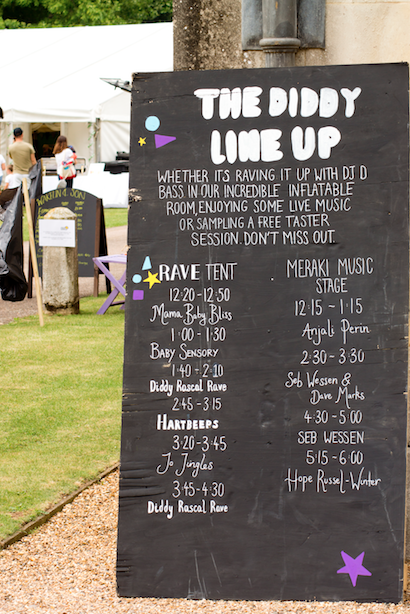 THE DIDDY
LINE UP
WHETHER ITS RAVING IT UP WITH DJ D
BASS IN OUR INCREDIBLE INFLATABLE
ROOM, ENJOYING SOME LIVE MUSIC
OR SAMPLING A FREE TASTER
SESSION. DON'T MISS OUT.
RAVE TENT
12:20-12:50
Mama Baby Bliss
1:00-1:30
Baby Sensory
1:40-2:10
Diddy Rascal Rave
2:45-3:15
HARTBEEPS
3:20-3:45
Jo Jingles
3:45-4:30
Diddy Rascal Rave
MERAKI MUSIC
STAGE
12:15-1:15
Anjali Perin
2:30-3:30
Seb Wesson &
Dave Marks
4:30-5:00
SEB WESSEN
5:15-6:00
Hope Russel-Winter